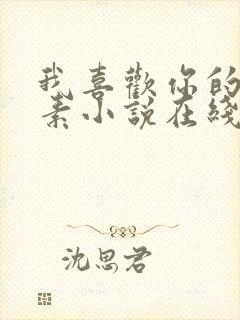 我喜歡你的
素小說在綫
沈思君